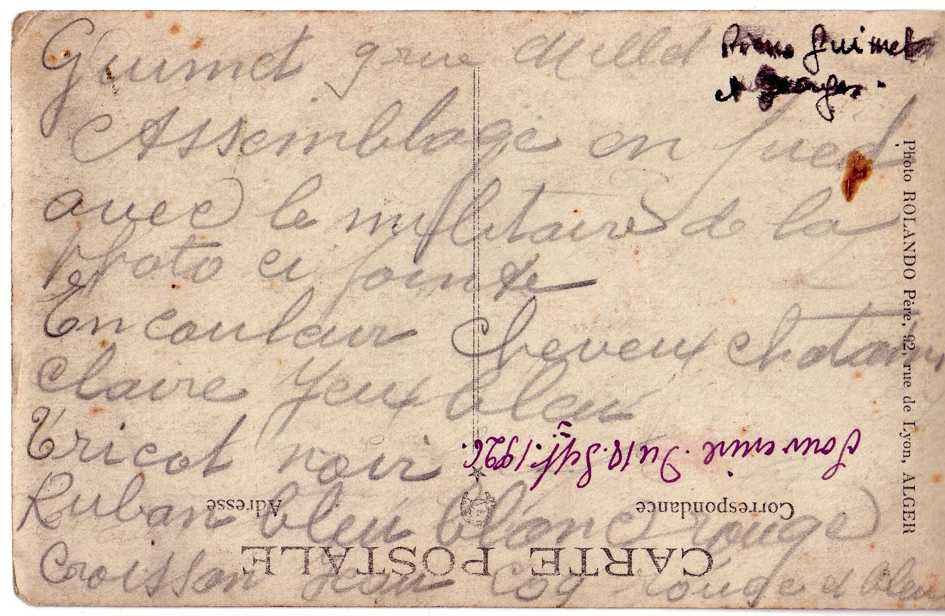 Guimet grue
Assemblage en pied
avec le militaire de la
Photo ci jointe
En couleur Cheveux chatain
claire yeux bleu
Tricot noir
Ruban bleu blanc rouge
Croissan Coq rouge et bleu
Guimet
Georges.
Photo ROLANDO Père, 92, rue de Lyon, ALGER
Souvenir. Du 12. Sept. 1926.
Correspondance
Adresse
CARTE POSTALE